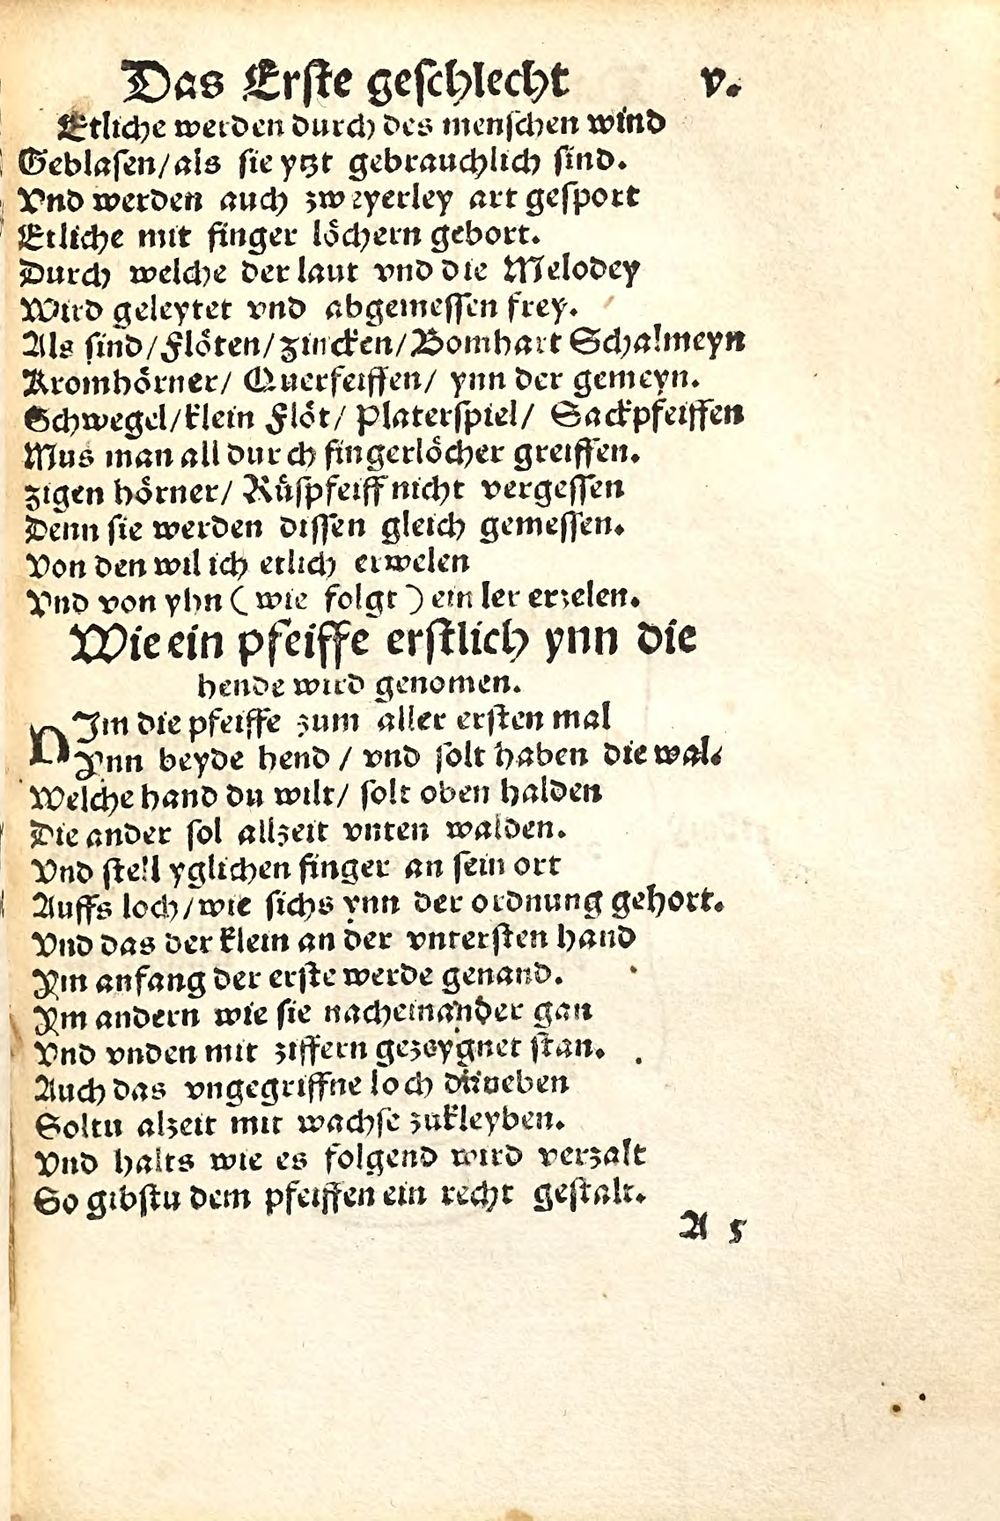 Das Erſte geſchlecht v.
Etliche werden durch des menſchen wind
Geblaſen/als ſie ytzt gebrauchlich ſind.
Vnd werden auch zweyerley art geſport
Etliche mit finger löchern gebort.
Durch welche der laut vnd die Melodey
Wird geleytet vnd abgemeſſen frey.
Als ſind/Flöten/zincken/Bomhart Schalmeyn
Kromhörner/ Querfeiffen/ ynn der gemeyn.
Schwegel/klein Flöt/ Platerſpiel/ Sackpfeiffen
Mus man all durch fingerlöcher greiffen.
zigen hörner/ Rüſpfeiff nicht vergeſſen
Denn ſie werden diſſen gleich gemeſſen.
Von den wil ich etlich erwelen
Vnd von yhn (wie folgt) ein ler erzelen.
Wie ein pfeiffe erſtlich ynn die
hende wird genomen.
NIm die pfeiffe zum aller erſten mal
Ynn beyde hend / vnd ſolt haben die wal.
Welche hand du wilt/ ſolt oben halden
Die ander ſol allzeit vnten walden.
Vnd ſtell yglichen finger an ſein ort
Auffs loch/wie ſichs ynn der ordnung gehort.
Vnd das der klein an der vnterſten hand
Ym anfang der erſte werde genand.
Ym andern wie ſie nacheinander gan
Vnd vnden mit ziffern gezeygnet ſtan.
Auch das vngegriffne loch daneben
Soltu alzeit mit wachſe zukleyben.
Vnd halts wie es folgend wird verzalt
So gibſtu dem pfeiffen ein recht geſtalt.
A 5